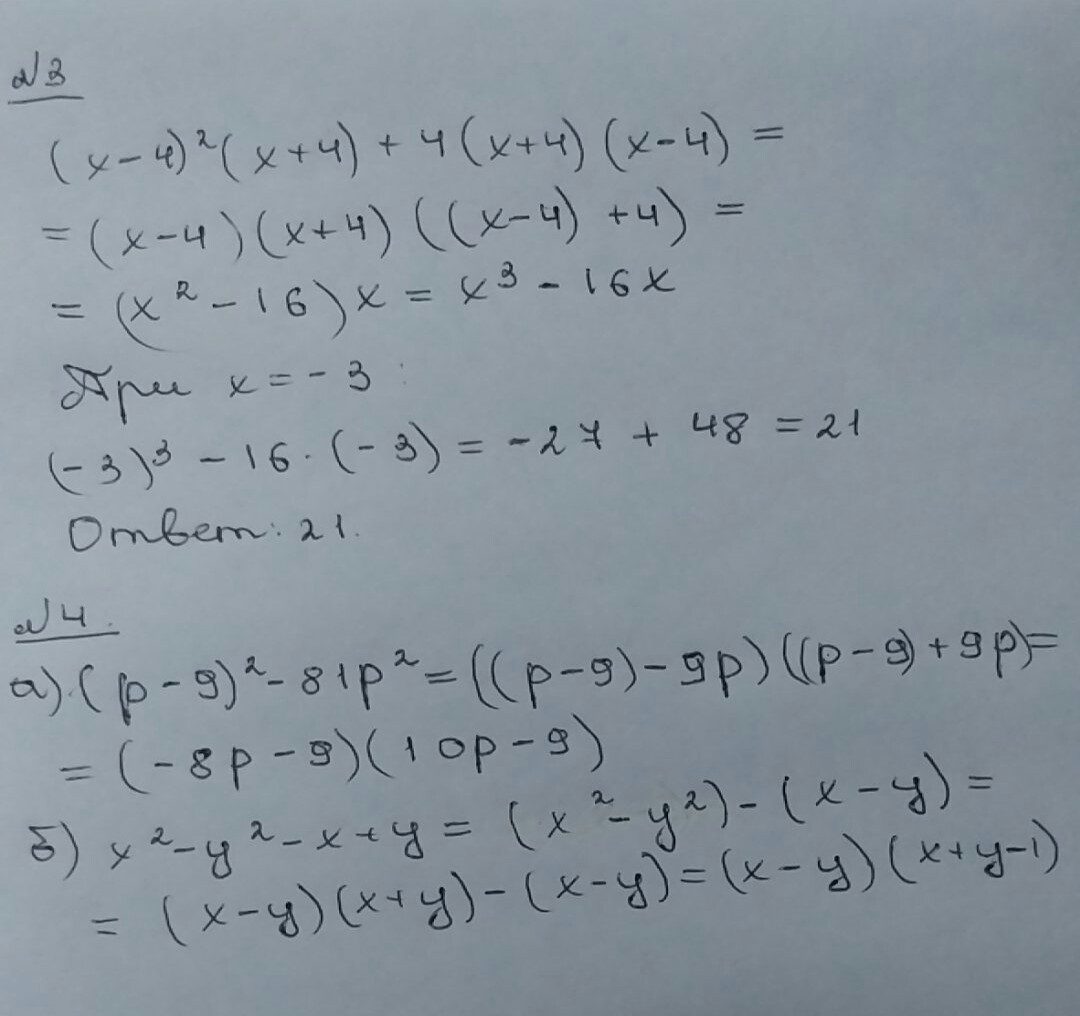 №3
(x-4)²(x+4)+4(x+4)(x-4)=
=(x-4)(x+4)((x-4)+4)=
=(x²-16)x=x³-16x
При x=-3:
(-3)³-16·(-3)=-27+48=21
Ответ: 21.
№4.
а)(p-9)²-81p²=((p-9)-9p)((p-9)+9p)=
=(-8p-9)(10p-9)
б) x²-y²-x+y=(x²-y²)-(x-y)=
=(x-y)(x+y)-(x-y)=(x-y)(x+y-1)